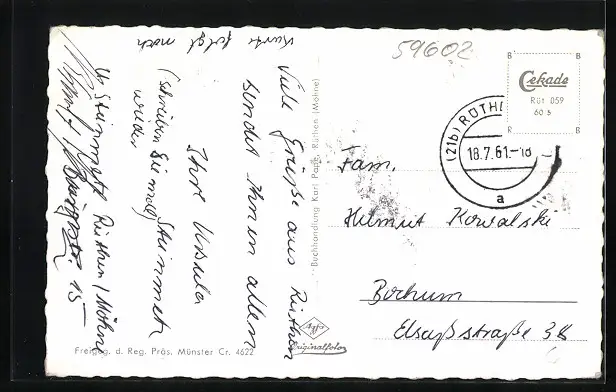 Karte folgt noch
Viele Grüße aus Rüthen
sendet Ihnen allen
Ihre Ursula
Steinmetz
(schreiben Sie mal
wieder)
U. Steinmetz Rüthen/Möhne
Burgstr. 15
Freigeg. d. Reg. Präs. Münster Cr. 4622
Buchhandlung Karl Pape, Rüthen (Möhne)
Agfa
Originalfoto
59602
B B
Cekade
Rüt 059
60 5
R B
(21b) RÜTHE
18.7.61.-18
a
Fam.
Helmut Kowalski
Bochum
Elsaßstraße 38